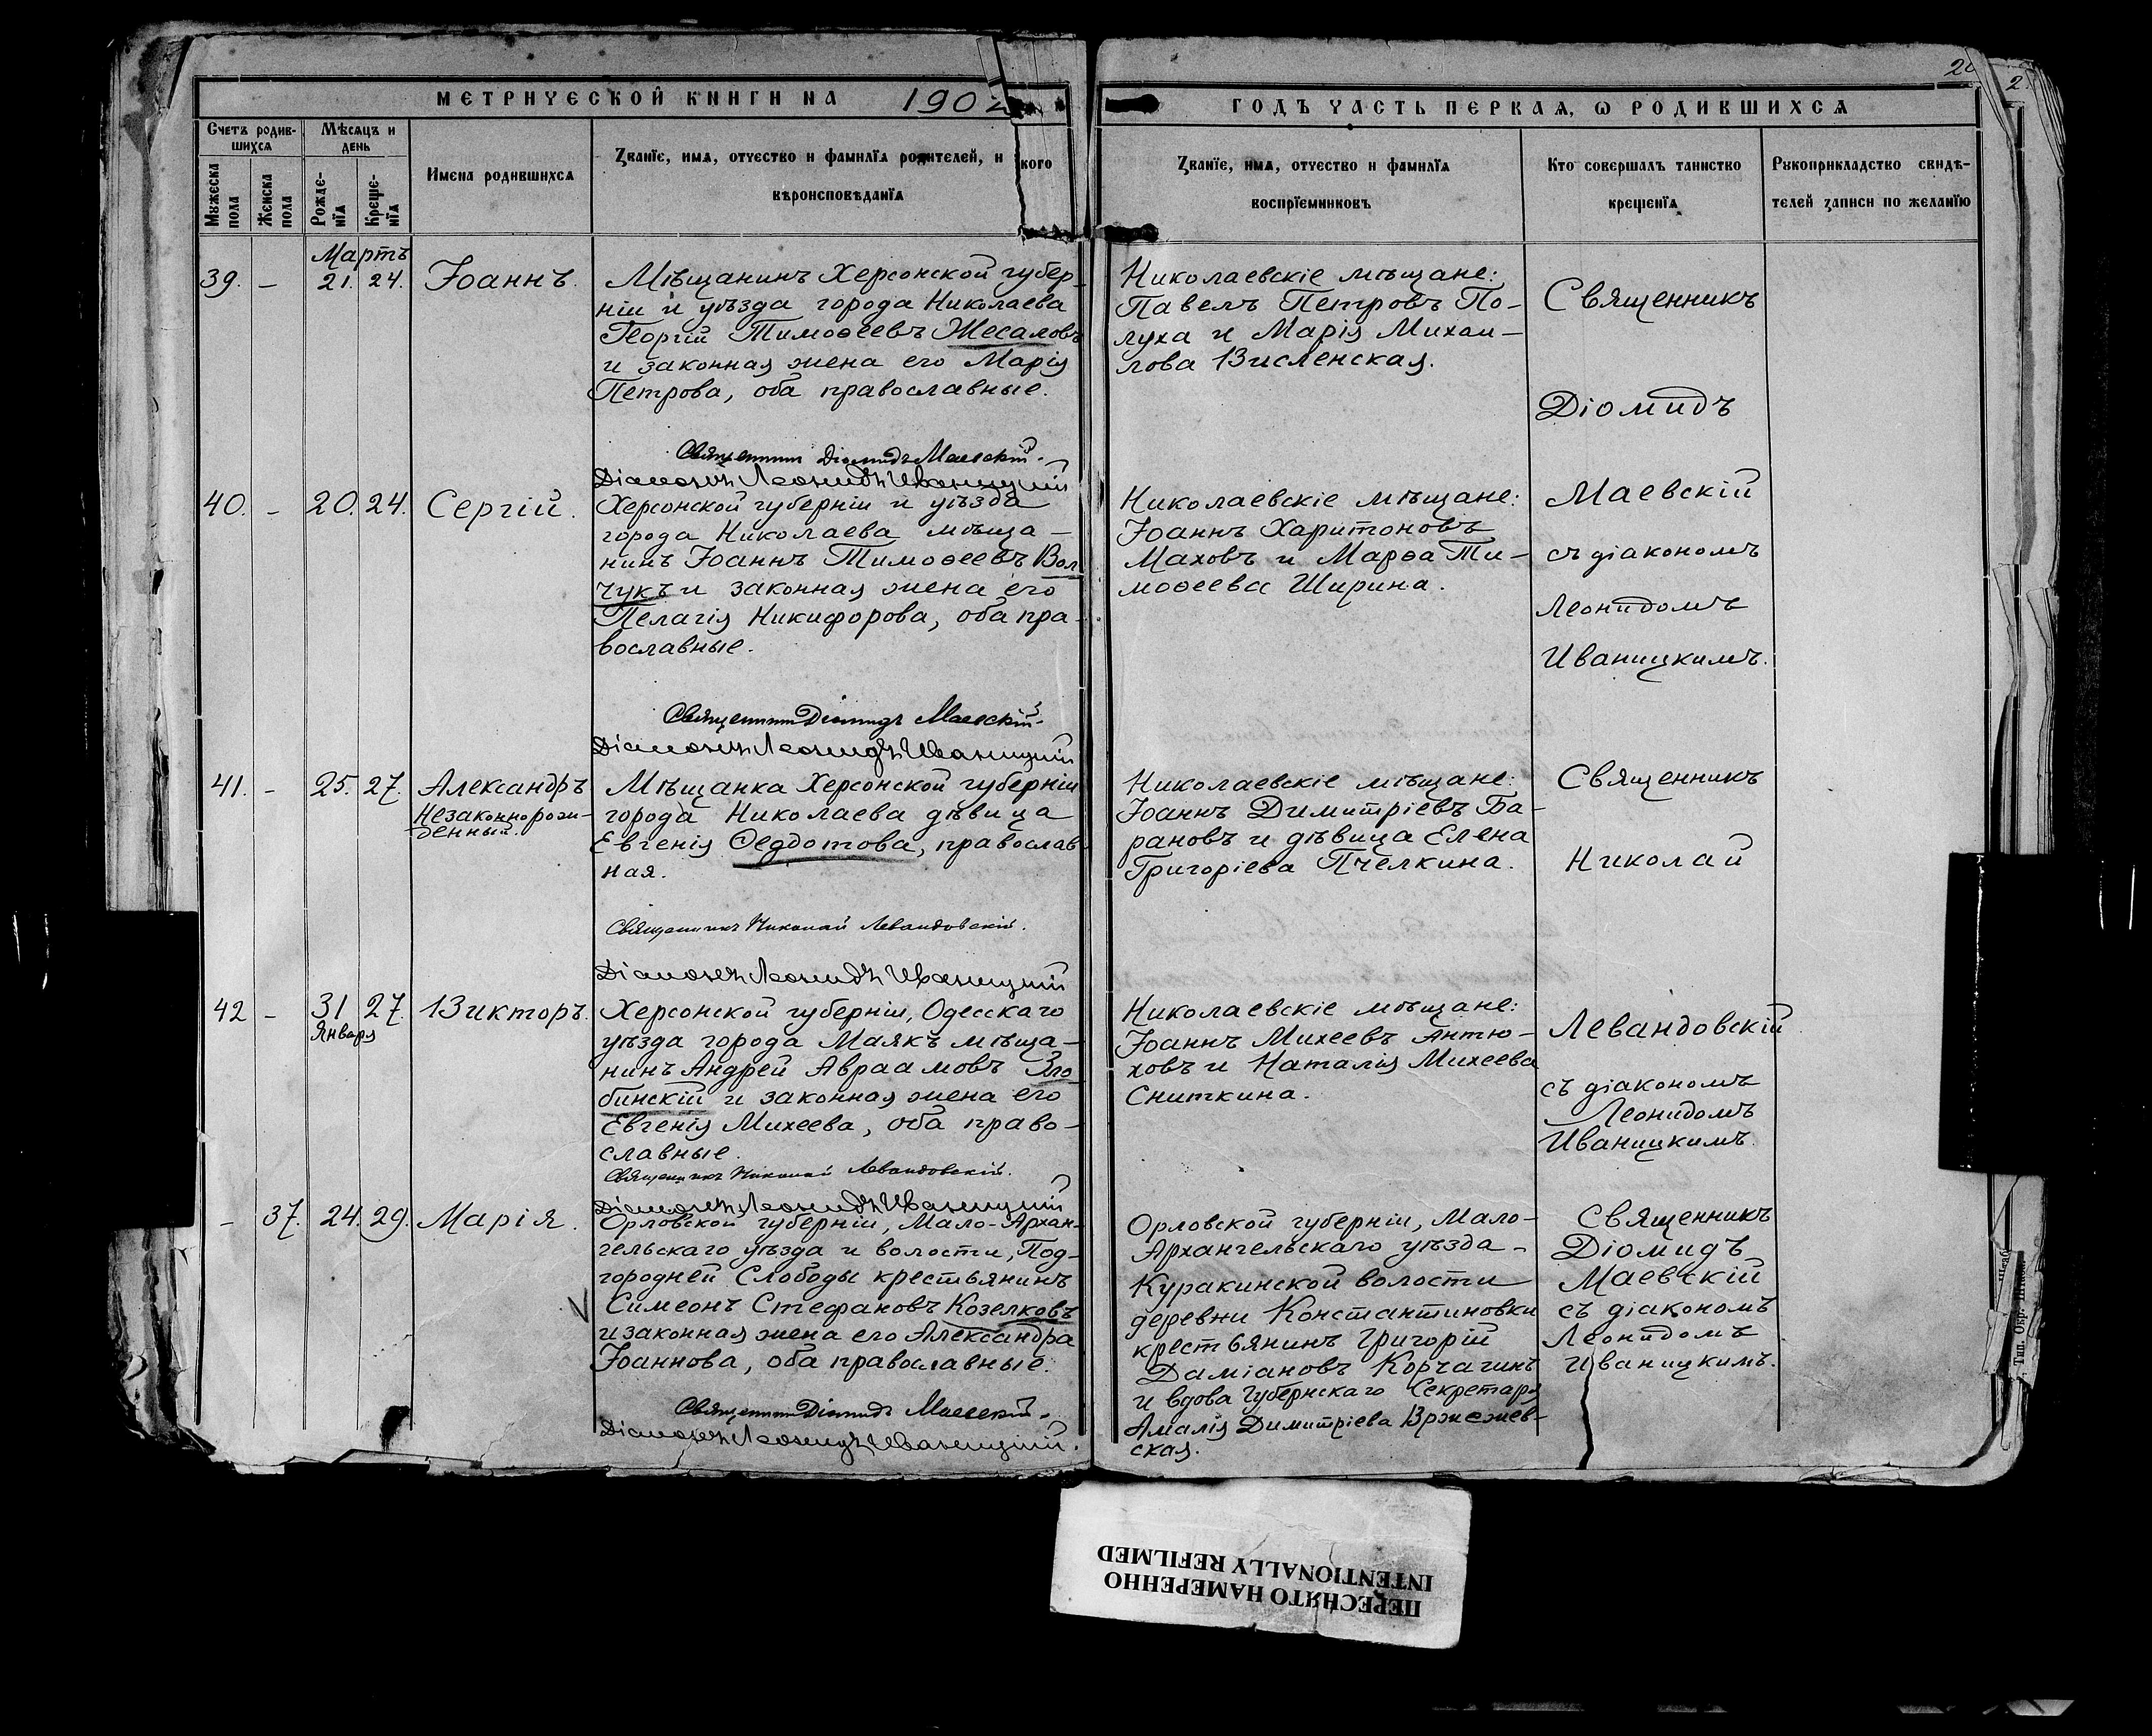 МЕТРИЧЕСКОЙ КНИГИ НА 1902
ГОДЪ ЧАСТЬ ПЕРВАЯ, Ѡ РОДИВШИХСЯ
Счетъ родив-
шихся
Мѣсяцъ и
день
Мужеска
пола
Женска
пола
Рожде-
нїя
Креще-
нїя
Имена родившихся
Званїе, имя, отчество и фамилїя родителей, и кого
вѣроисповѣданїя
Званїе, имя, отчество и фамилїя
воспрїемниковъ
Кто совершалъ таинство
крещенїя
Рукоприкладство свидѣ-
телей записи по желанїю
Мартъ
39. – 21. 24. Іоаннъ.
Мѣщанинъ Херсонской губер-
ніи и уѣзда города Николаева
Георгій Тимоѳеевъ Жесаловъ
и законная жена его Марія
Петрова, оба православные.
Священникъ Діомидъ Маевскій.
Діаконъ Леонидъ Иваницкій
Николаевскіе мѣщане:
Павелъ Петровъ По-
луха и Марія Михаи-
лова Висленская.
Священникъ
Діомидъ
Маевскій
съ діакономъ
Леонидомъ
Иваницкимъ.
40. – 20. 24. Сергій.
Херсонской губерніи и уѣзда
города Николаева мѣща-
нинъ Іоаннъ Тимоѳеевъ Вол
чукъ и законная жена его
Пелагія Никифорова, оба пра-
вославные.
Священникъ Діомидъ Маевскій.
Діаконъ Леонидъ Иваницкій
Николаевскіе мѣщане:
Іоаннъ Харитоновъ
Маховъ и Марѳа Ти-
моѳеева Ширина.
41. – 25. 27. Александръ
Незаконнорож-
денный.
Мѣщанка Херсонской губерніи
города Николаева дѣвица
Евгенія Ѳедотова, православ-
ная.
Священникъ Николай Левандовскій.
Діаконъ Леонидъ Иваницкій
Николаевскіе мѣщане:
Іоаннъ Димитріевъ Ба-
рановъ и дѣвица Елена
Григоріева Пчелкина.
Священникъ
Николай
Левандовскій
съ діакономъ
Леонидомъ
Иваницкимъ.
42 – 31 27. Викторъ.
Января
Херсонской губерніи, Одесскаго
уѣзда города Маякъ мѣща-
нинъ Андрей Авраамовъ Зло
бинскій и законная жена его
Евгенія Михеева, оба право-
славные.
Священникъ Николай Левандовскій.
Діаконъ Леонидъ Иваницкій
Николаевскіе мѣщане:
Іоаннъ Михеевъ Антю-
ховъ и Наталія Михеева
Сниткина.
– 37. 24. 29. Марія.
Орловской губерніи, Мало-Архан-
гельскаго уѣзда и волости, Под-
городней Слободы крестьянинъ
Симеонъ Стефановъ Козелковъ
и законная жена его Александра
Іоаннова, оба православные.
Священникъ Діомидъ Маевскій.
Діаконъ Леонидъ Иваницкій.
Орловской губерніи, Мало-
Архангельскаго уѣзда –
Куракинской волости
деревни Константиновки
крестьянинъ Григорій
Даміановъ Корчагинъ
и вдова Губернскаго Секретаря
Амалія Димитріева Вржежев-
ская.
Священникъ
Діомидъ
Маевскій
съ діакономъ
Леонидомъ
Иваницкимъ.
ПЕРЕСНЯТО НАМЕРЕННО
INTENTIONALLY REFILMED